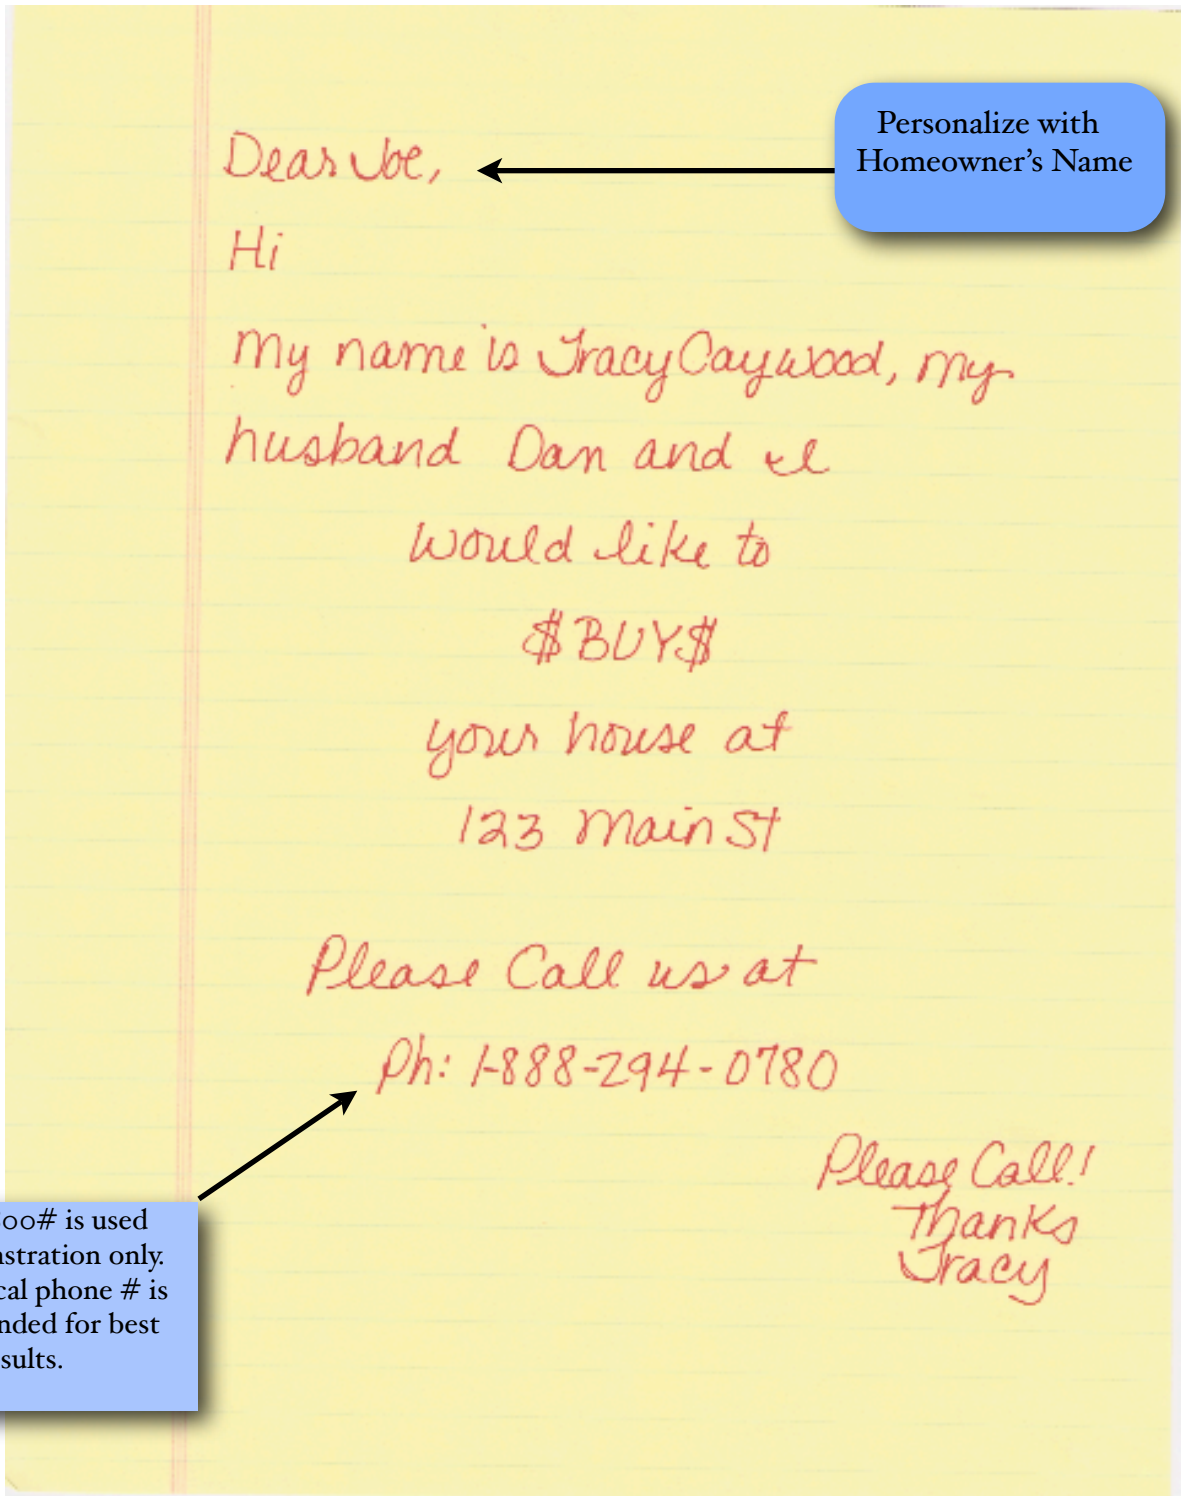 Personalize with
Homeowner's Name
Dear Joe,
Hi
My name is Tracy Caywood, my
husband Dan and I
would like to
$BUY$
your house at
123 Main St
Please Call us at
Ph: 1-888-294-0780
Please Call!
Thanks
Tracy
is used
only.
phone # is
for best